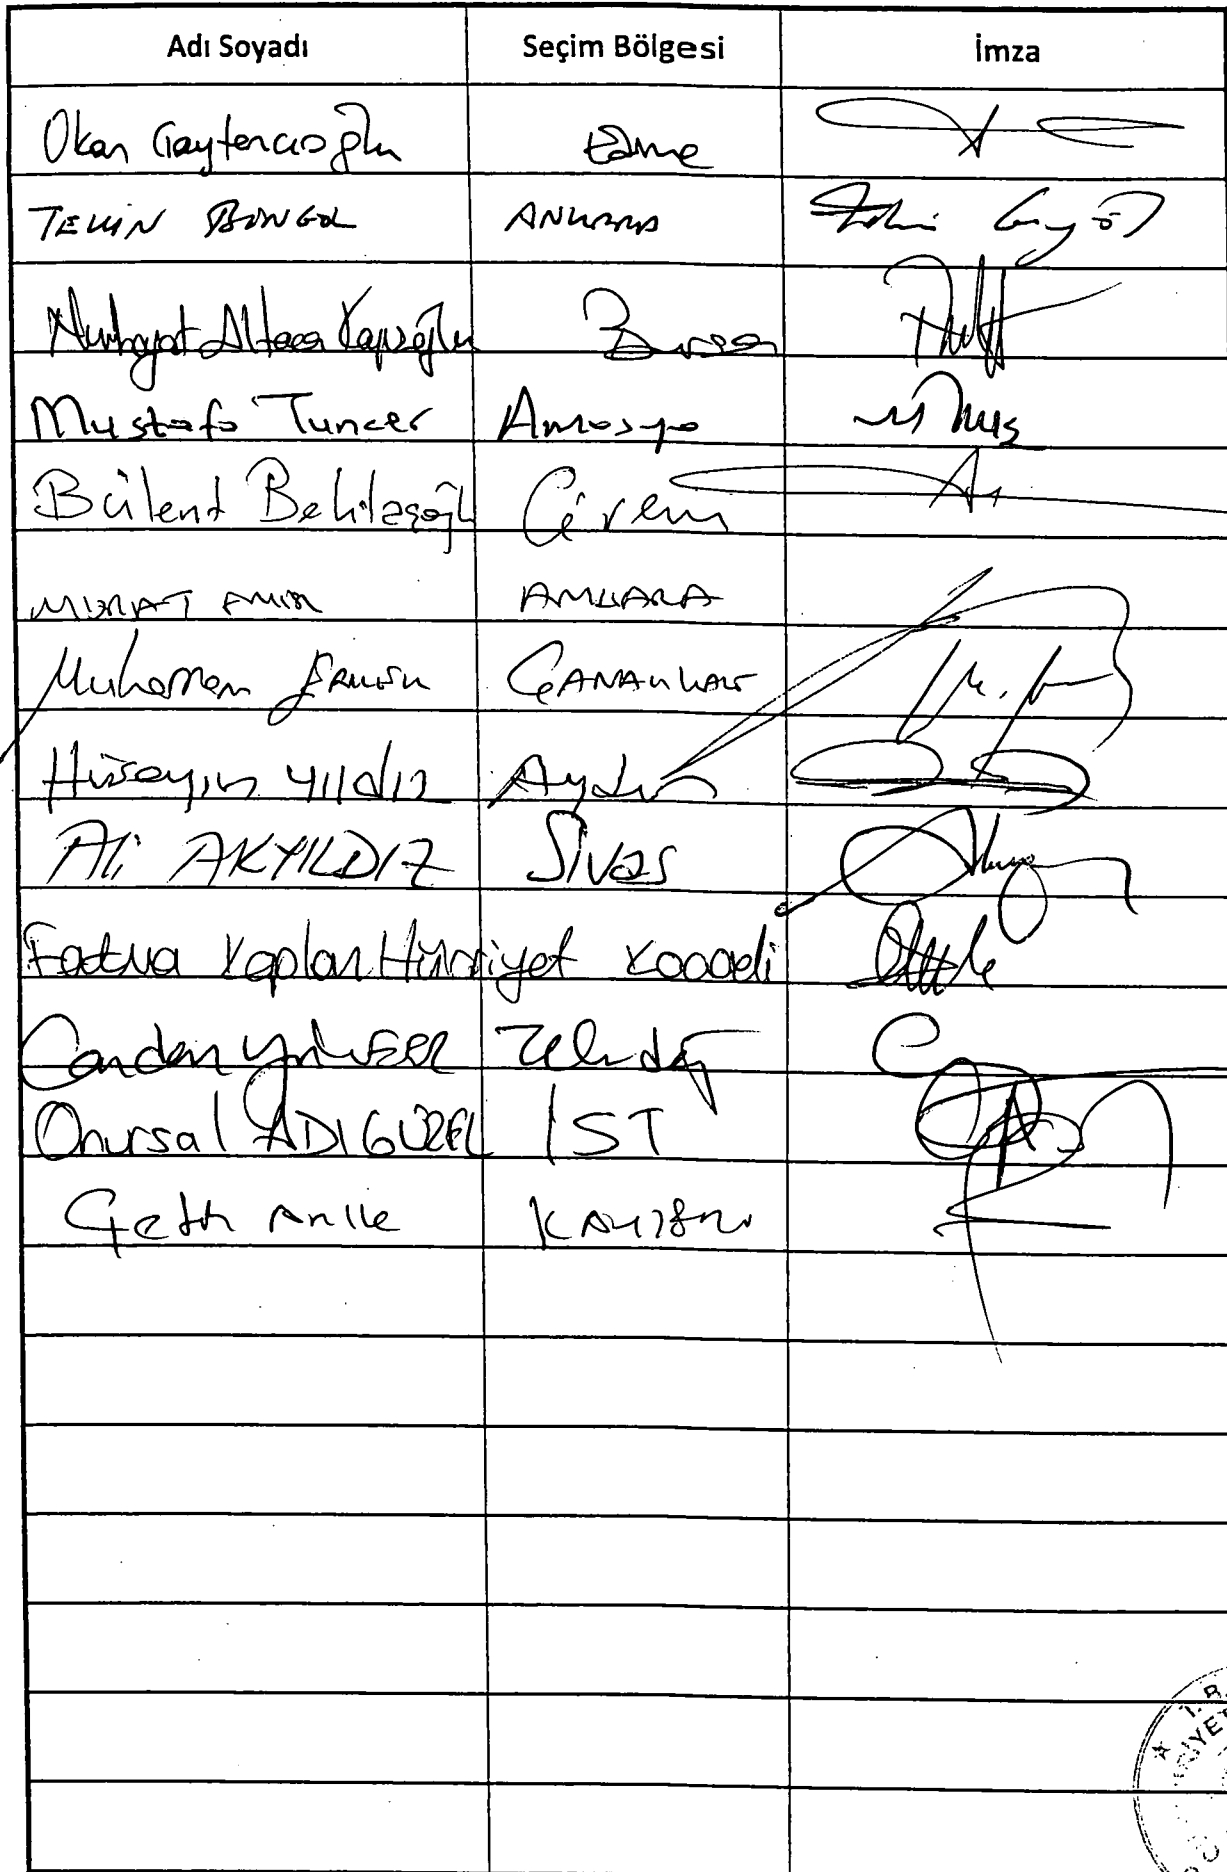 Adı Soyadı Seçim Bölgesi İmza
Okan Gaytancıoğlu Edirne
TEKİN BİNGÖL ANKARA Tekin Bingöl
Nurhayat Altaca Kayışoğlu Bursa
Mustafa Tuncer Amasya
Bülent
MURAT EMİR ANKARA
Muharrem ERKEK ÇANAKKALE
Hüseyin YILDIZ Aydın
Ali AKYILDIZ SİVAS
Fatma Kaplan Hürriyet Kocaeli
Candan YÜCEER Tekirdağ
Onursal ADIGÜZEL İST
Çetin Arık KAYSERİ